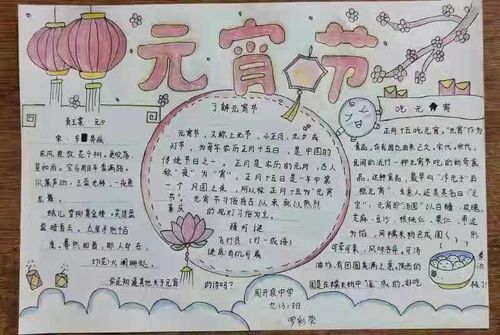 元宵节
青玉案·元夕
宋·辛弃疾
东风夜放花千树,更吹落
星如雨。宝马雕车香满路。
凤箫声动,玉壶光转,一夜鱼
龙舞。
蛾儿雪柳黄金缕,笑语盈
盈暗香去。众里寻他千百
度,蓦然回首,那人却在,
灯火阑珊处。
你还知道其他关于元宵
的诗吗?
了解元宵节
元宵节,又称上元节、小正月、元夕或
灯节,为每年农历正月十五日,是中国的
传统节日之一。正月是农历的元月,古人
称“夜”为“宵”,正月十五日是一年中第
一个月圆之夜,所以称正月十五为“元宵
节”。元宵节习俗自古以来就以热烈
喜庆的观灯习俗为主。
猜灯谜
飞行员(打一成语)
谜底有机可乘
吃元宵
正月十五吃元宵,“元宵”作为
食品,在我国也由来已久。宋代,
民间即流行一种元宵节吃的新奇食
品。这种食品,最早叫“浮元子”后
称“元宵”,生意人还美其名曰“元
宝”。元宵即“汤圆”以白糖、玫瑰、
芝麻、豆沙、核桃仁、果仁、枣泥
为馅,用糯米粉包成圆
可荤可素,风味各异。可汤
油炸,有团圆美满之意。陕西的
周升泉中学
九(3)班
罗彩荣